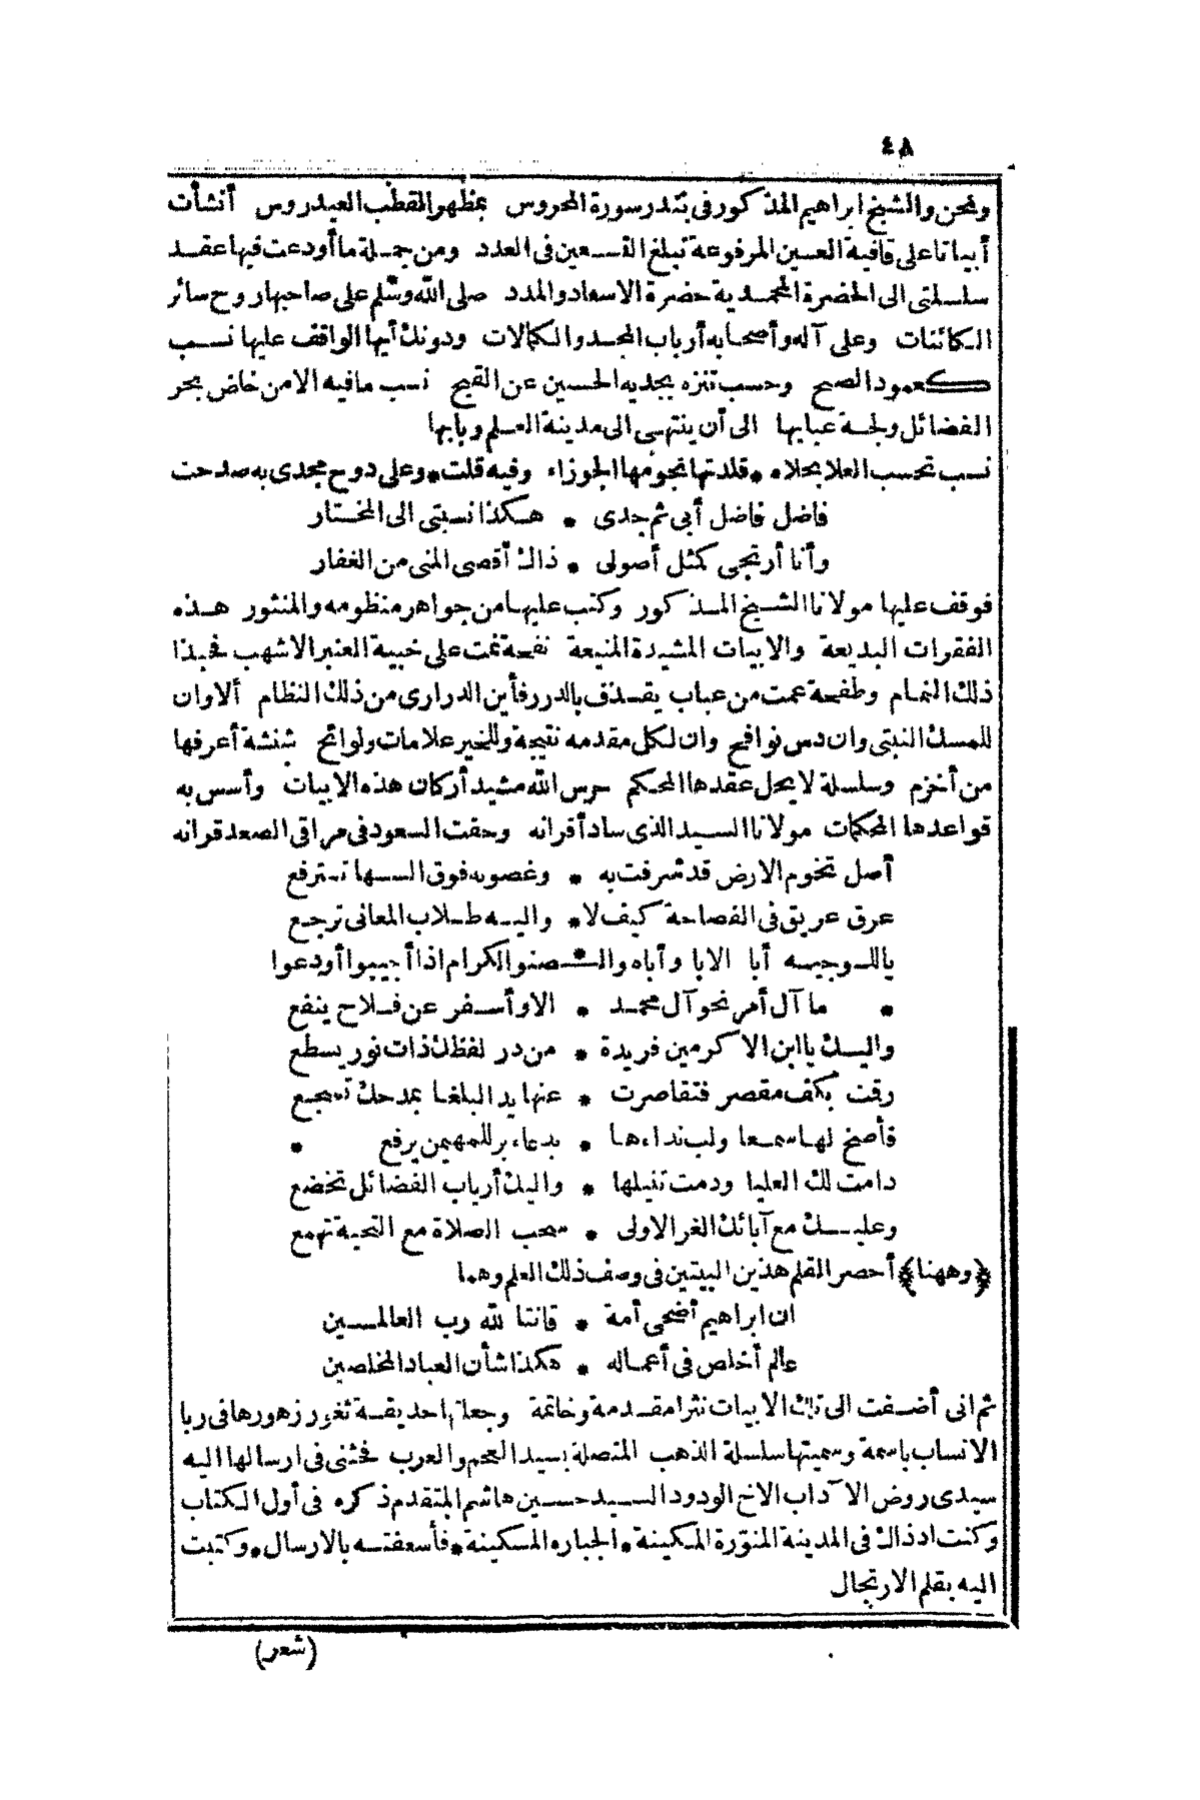 ٤٨
ونحن والشيخ ابراهيم المذكور فى بندر سورة المحروس بمظهو القطب العيدروس أنشأت
أبياتا على قافية العسين المرفوعة تبلغ التسعين فى العدد ومن جملة ما أودعت فيها عقد
سلسلتى الى الحضرة المحمدية حضرة الاسعاد والمدد صلى الله وسلم على صاحبها روح سائر
الكائنات وعلى آله وأصحابه أرباب المجد والكمالات ودونك أيها الواقف عليها نسب
كعمود الصبح وحسب تنزه بجديه الحسين عن القبح نسب مافيه الامن خاض بحر
الفضائل ولجة عبابها الى أن ينتهى الى مدينة العلم وبابها
نسب تحسب العلا بحلاه * قلدتها نجومها الجوزاء وفيه قلت * وعلى دوح مجدى به صدحت
فاضل فاضل أبى ثم جدى * هكذا نسبتى الى المختار
وأنا أرتجى كمثل أصولى * ذاك أقصى المنى من الغفار
فوقف عليها مولانا الشيخ المذكور وكتب عليها من جواهر منظومه والمنثور هذه
الفقرات البديعة والابيات المشيدة المنيعة نفحة نمت على خبية العنبر الاشهب فحبذا
ذلك النمام وطفحة عمت من عباب يقذف بالدرر فأين الدرارى من ذلك النظام ألا وان
للمسك النبتى وان دس نوافح وان لكل مقدمه نتيجة وللخير علامات ولوائح شنشة أعرفها
من أخزم وسلسلة لا يحل عقدها المحكم حرس الله مشيد أركان هذه الابيات وأسس به
قواعدها المحكمات مولانا السيد الذى ساد أقرانه وحقت السعود فى مراقى الصعد قرانه
أصل تخوم الارض قد شرفت به * وغصونه فوق السها تترفع
عرق عريق فى الفصاحة كيف لا * واليه طلاب المعانى ترجع
يا للوجيه أبا الابا وأباه والـ * ـصنو الكرام اذا أجيبوا أودعوا
* ما آل أمر نحو آل محمد * الا وأسفر عن فلاح ينفع
واليك يا ابن الاكرمين فريدة * من در لفظك ذات نور يسطع
رقت بكف مقصر فتقاصرت * عنها يد البلغا بمدحك تسجع
فأصخ لها سمعا ولب نداءها * بدعاء بر للمهيمن يرفع *
دامت لك العليا ودمت تنيلها * واليك أرباب الفضائل تخضع
وعليك مع آبائك الغر الاولى * سحب الصلاة مع التحية تهمع
﴿وههنا﴾ أحصر القلم هذين البيتين فى وصف ذلك العلم وهما
ان ابراهيم أضحى أمة * قانتا لله رب العالمين
عالم أخلص فى أعماله * هكذا شأن العباد المخلصين
ثم انى أضفت الى تلك الابيات نثرا مقدمة وخاتمة وجعلتها حديقة ثغور زهورها فى ربا
الانساب باسمة وسميتها سلسلة الذهب المتصلة بسيد العجم والعرب فحثنى فى ارسالها اليه
سيدى روض الآداب الاخ الودود السيد حسين هاشم المتقدم ذكره فى أول الكتاب
وكنت اذ ذاك فى المدينة المنورة المكينة * الجباره المسكينة * فأسعفته بالارسال * وكتبت
اليه بقلم الارتجال
(شعر)